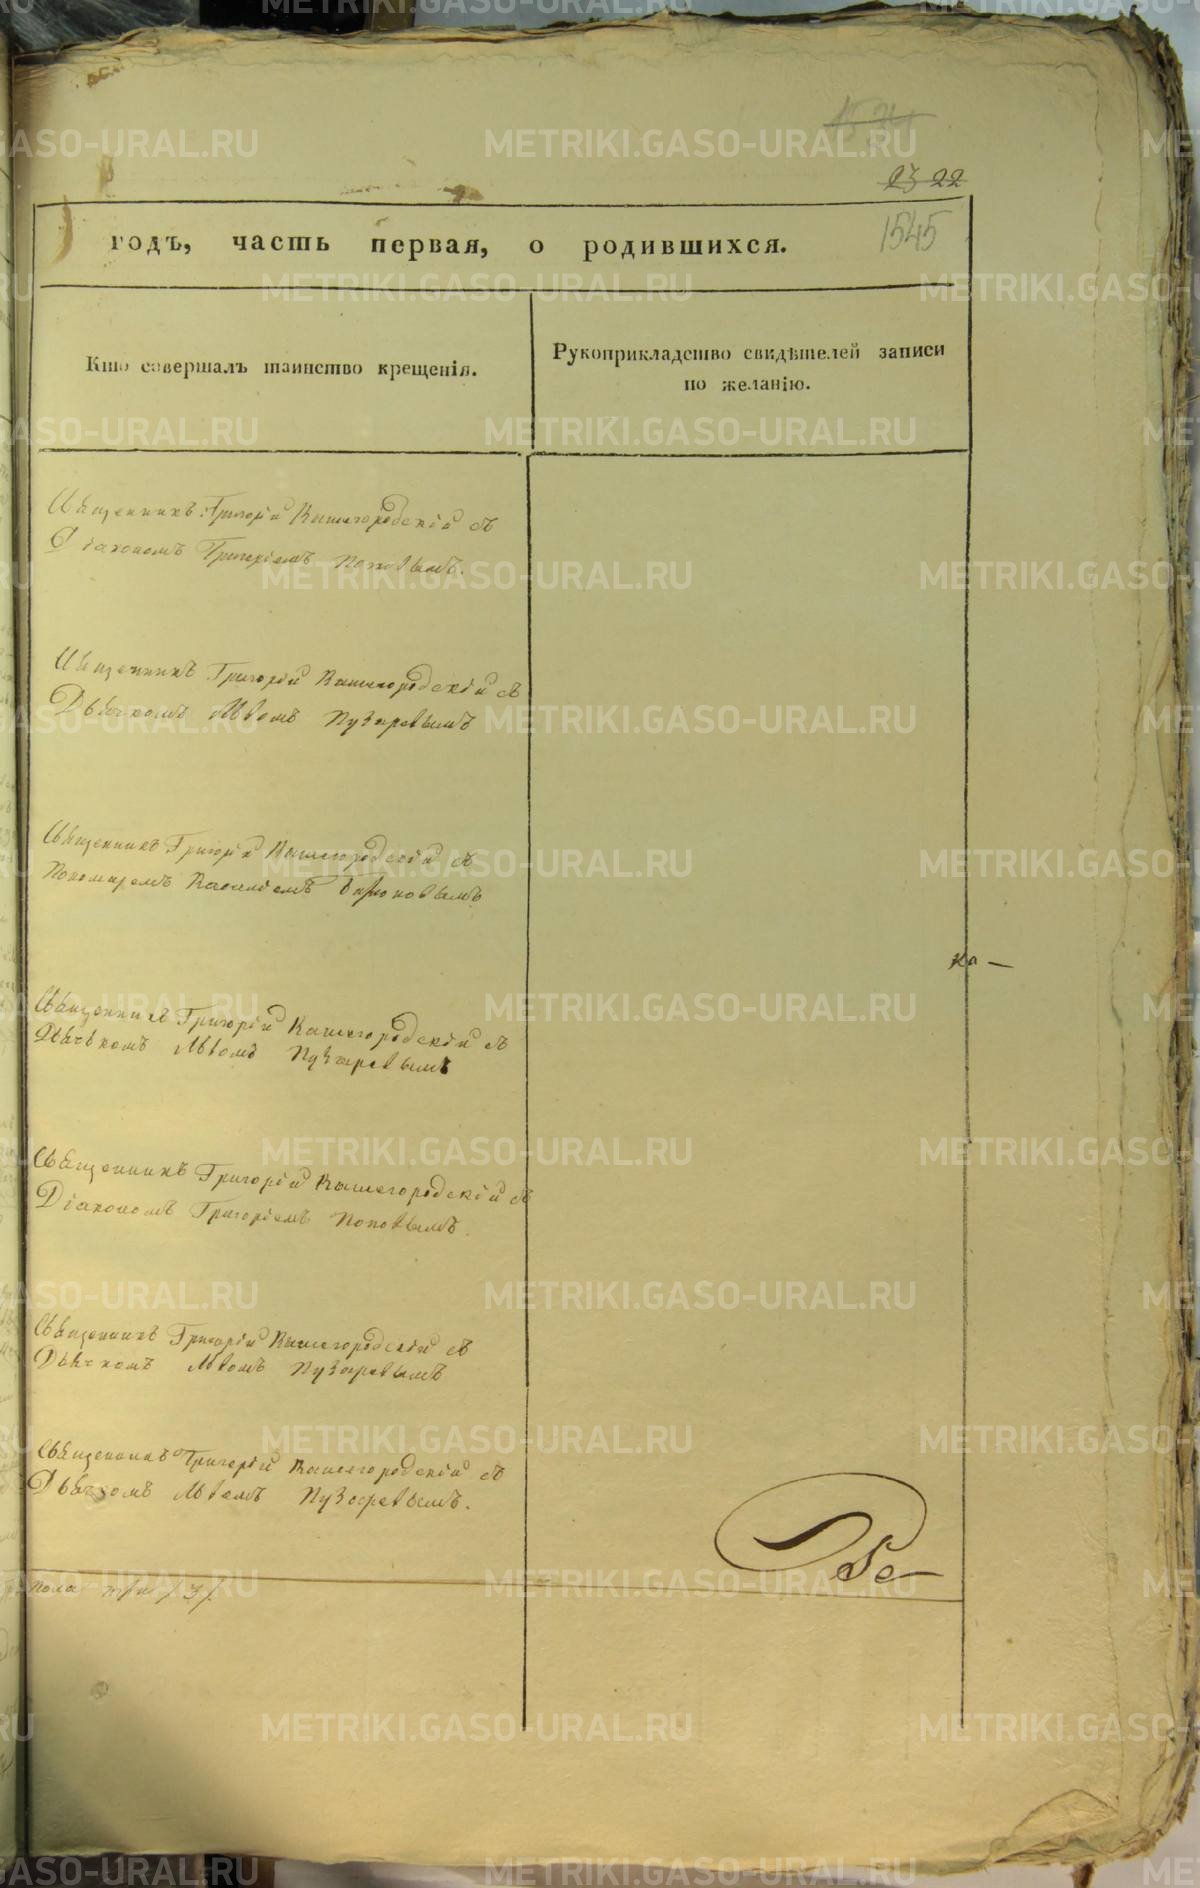 23 22
1545
годъ, часть первая, о родившихся.
Кто совершалъ таинство крещенія.
Рукоприкладство свидѣтелей записи
по желанію.
Священникъ Григорій Вышегородскій съ
Діакономъ Григоріемъ Поповымъ.
Священникъ Григорій Вышегородскій съ
Дьячкомъ Львомъ Пузыревымъ
Священникъ Григорій Вышегородскій съ
Пономаремъ Василіемъ Бирюковымъ
Священникъ Григорій Вышегородскій съ
Дьячькомъ Львомъ Пузыревымъ
Священникъ Григорій Вышегородскій съ
Діакономъ Григоріемъ Поповымъ.
Священникъ Григорій Вышегородскій съ
Дьячкомъ Львомъ Пузыревымъ
Священникъ Григорій Вышегородскій съ
Дьячкомъ Львомъ Пузыревымъ.
пола три /3/.
METRIKI.GASO-URAL.RU